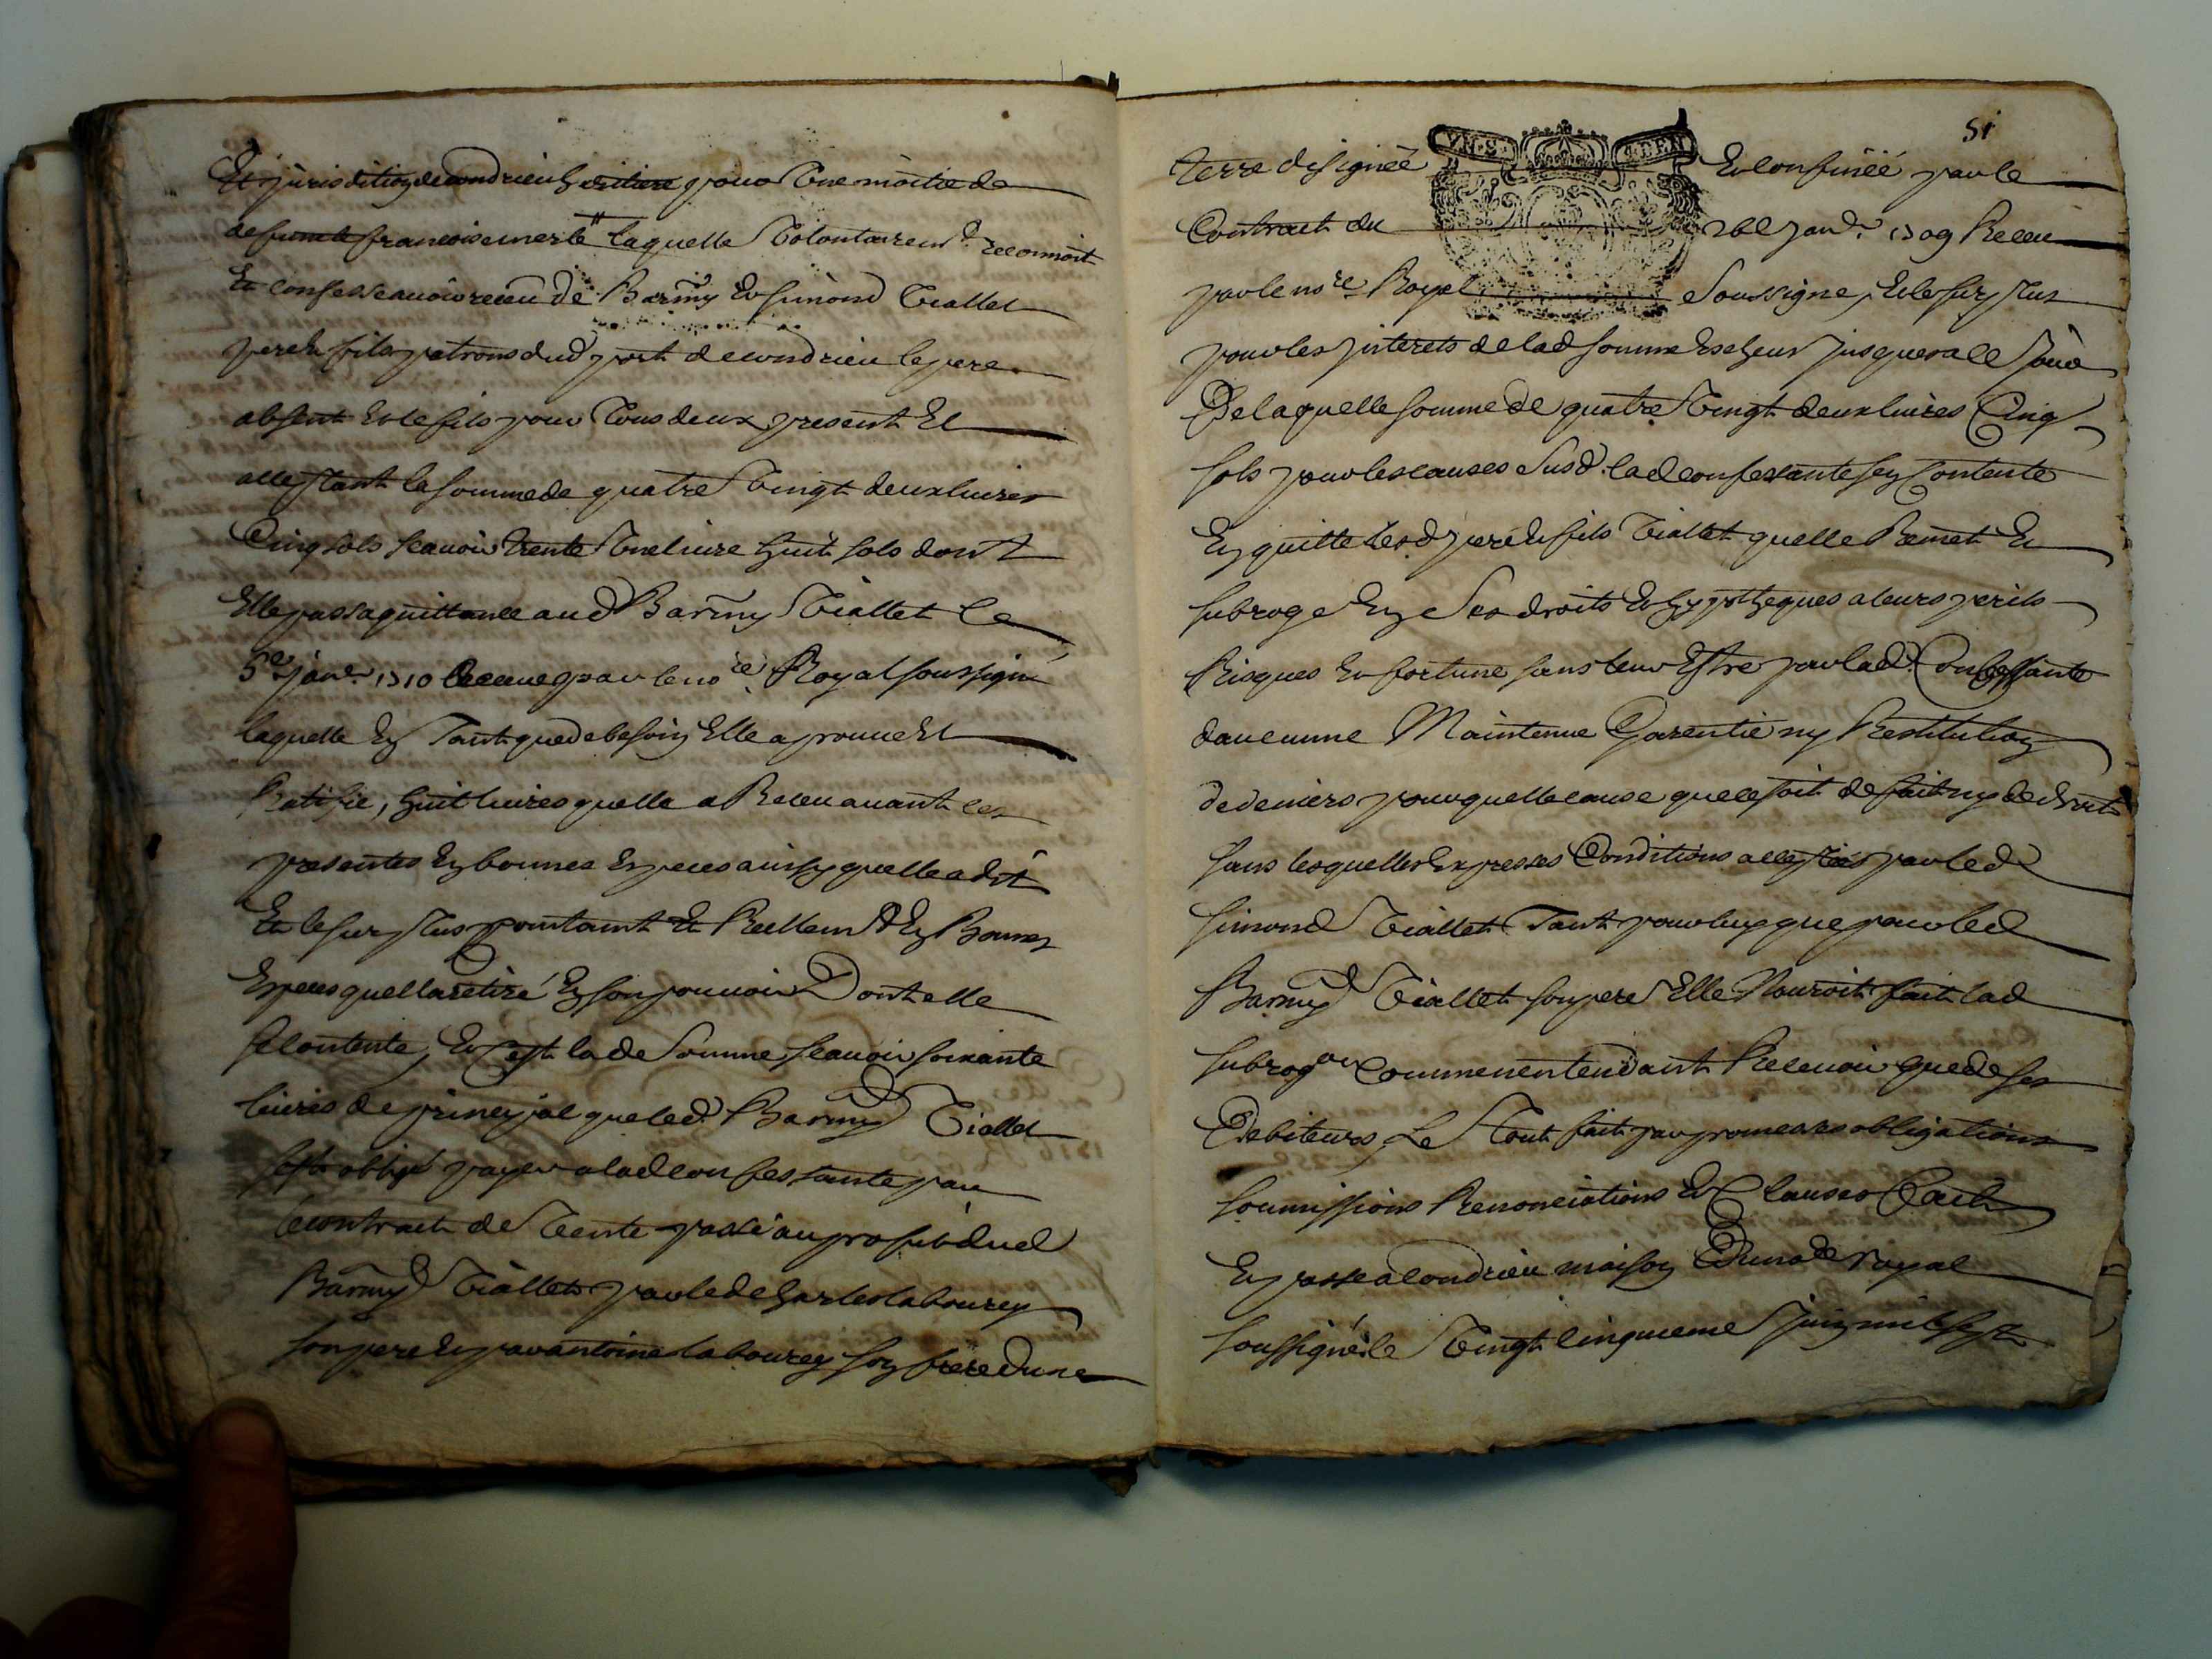 Et jurisdition de Condrieu heritiere pour Une moitie de
defunte francoise merle laquelle Volontairemt. reconnoit
Et Confesse avoir receu de Barmy Et Simond Viallet
pere Et fils patrons dud port de condrieu le pere
absent Et le fils pour Tous deux present Et
acceptant la somme de quatre Vingt deux livres
Cinq sols scavoir trente Une livre huit sols dont
Elle passa quittance aud Barmy Viallet le
5e janr. 1710 Receue par le nore. Royal soussigné
laquelle En Tant que de besoin Elle aprouve Et
Ratifie, huit livres quelle a Receu avant les
presentes En bonnes Especes ainsy quelle a dit
Et le surplus contant Et Reellemt En Bonnes
Especes quella retiré En son pouvoir Dont elle
se Contente, Et Cest lade Somme scavoir soixante
livres de principal que led. Barmy Viallet
sest obligé payer a lad confessante par
le contract de Vente passé au profit dud
Barmy Viallet par led Charles labourey
son pere Et par antoine labourey son frere dune
51
terre designée Et Confinée par le
Contract du 26e janr. 1709 Receu
par le nore. Royal Soussigne, Et le surplus
pour les interets de lad somme Escheus jusques a Ce Jour
De laquelle somme de quatre Vingt deux livres Cinq
sols pour les causes Susd. lad confessante sen Contente
En quitte lesd pere Et fils Viallet quelle Remet Et
subroge En Ses droits Et hypotheques a leurs perils
Risques Et fortune sans leur Estre par lad. Confessante
daucunne Maintenue Garentie ny Restitution
de deniers pour quelle cause que ce soit de fait ny de droit
sans lesquelles Expresses Conditions acceptées par led
simond Viallet Tant pour luy que pour led
Barmy Viallet son pere Elle Nauroit fait lad
subrogon Comme nentendant Recevoir que de ses
Debiteurs, Le Tout fait par promesses obligations
soumissions Renonciations Et Clauses fait
Et passe a Condrieu maison Du nore royal
soussigné le Vingt Cinquieme Juin mil sept